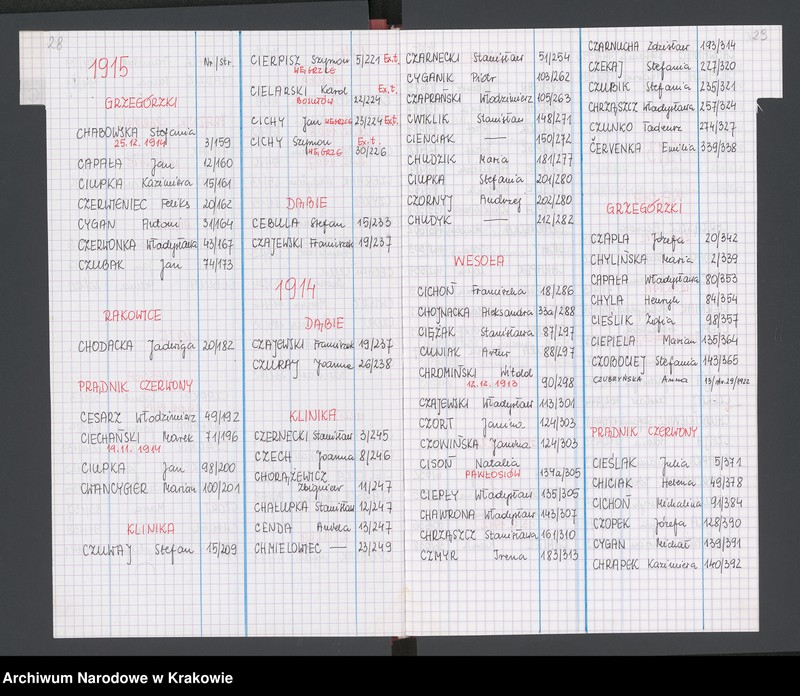 28
1915 Nr/Str.
GRZEGÓRZKI
CHABOWSKA Stefania
25.12.1914 3/159
CAPAŁA Jan 12/160
CIUPKA Kazimiera 15/161
CZERWIENIEC Feliks 20/162
CYGAN Antoni 31/164
CZERWONKA Władysława 43/167
CZUBAK Jan 74/173
RAKOWICE
CHODACKA Jadwiga 20/182
PRĄDNIK CZERWONY
CESARZ Włodzimierz 49/192
CIECHAŃSKI Marek 71/196
19.11.1914
CIUPKA Jan 98/200
CWANCYGIER Marian 100/201
KLINIKA
CZUWAJ Stefan 15/209
CIERPISZ Szymon 5/221 Ex.t.
WĘGRZCE
CIELARSKI Karol Ex.t.
22/224
CICHY Jan WĘGRZCE 23/224 Ex.t.
CICHY Szymon Ex.t.
WĘGRZCE 30/226
DĄBIE
CEBULA Stefan 15/233
CZAJEWSKI Franciszek 19/237
1914
DĄBIE
CZAJEWSKI Franciszek 19/237
CZURAJ Joanna 26/238
KLINIKA
CZERNECKI Stanisław 3/245
CZECH Joanna 8/246
CHORĄŻEWICZ
Zbigniew 11/247
CHAŁUPKA Stanisław 12/247
CENDA Aniela 13/247
CHMIELOWIEC — 23/249
CZARNECKI Stanisław 51/254
CYGANIK Piotr 103/262
CZAPRAŃSKI Włodzimierz 105/263
ĆWIKLIK Stanisław 148/271
CIENCIAK — 150/272
CHUDZIK Maria 181/277
CIUPKA Stefania 201/280
CZORNYJ Andrzej 202/280
CHUDYK — 212/282
WESOŁA
CICHOŃ Franciszka 18/286
CHOJNACKA Aleksandra 33a/288
CIĘŻAK Stanisława 87/297
CUNIAK Artur 88/297
CHROMIŃSKI Witold
12.12.1913 90/298
CZAJEWSKI Władysław 113/301
CZORT Janina 124/303
CZOWIŃSKA Janina 124/303
CISOŃ Natalia
PAWŁOSIÓW 134a/305
CIEPŁY Władysław 135/305
CHAWRONA Władysław 143/307
CHRZĄSZCZ Stanisława 161/310
CZMYR Irena 183/313
23
CZARNUCHA Zdzisław 193/314
CZEKAJ Stefania 227/320
CZUBIK Stefania 235/321
CHRZĄSZCZ Władysława 257/324
CZUNKO Tadeusz 274/327
ČERVENKA Emilia 339/338
GRZEGÓRZKI
CZAPLA Józefa 20/342
CHYLIŃSKA Maria 2/339
CAPAŁA Władysława 80/353
CHYLA Henryk 84/354
CIEŚLIK Zofia 98/357
CIEPIELA Marian 135/364
CZOBOCIEJ Stefania 143/365
CZUBRYŃSKA Anna
PRĄDNIK CZERWONY
CIEŚLAK Julia 5/371
CHICIAK Helena 49/378
CICHOŃ Michalina 91/384
CZOPEK Józefa 128/390
CYGAN Michał 139/391
CHRAPEK Kazimiera 140/392
Archiwum Narodowe w Krakowie